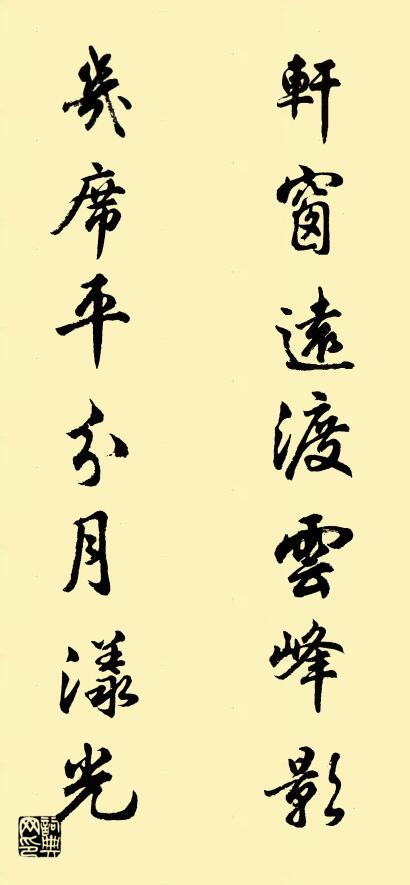 軒窗遠渡雲峰影
幾席平分月漾光
詞典网印